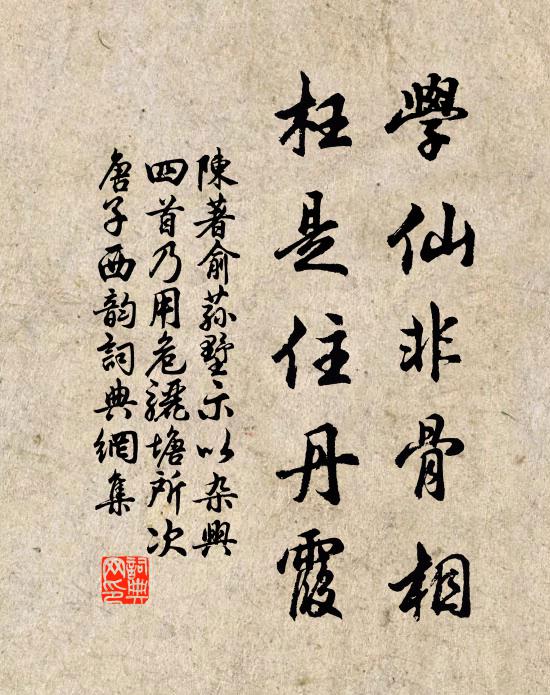 學仙非骨相
枉是住丹霞
陳著俞荪墅示以杂興
四首乃用危驪塘所次
唐子西韵詞典網集
詞典網印